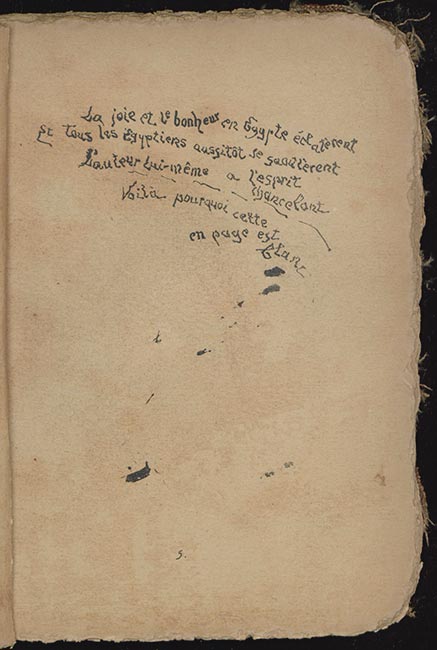 La joie et le bonheur en Égypte éclatèrent
Et tous les Égyptiens aussitôt se saoulèrent
L'auteur lui-même a l'esprit chancelant
Voilà pourquoi cette
en page est
blanc
5.